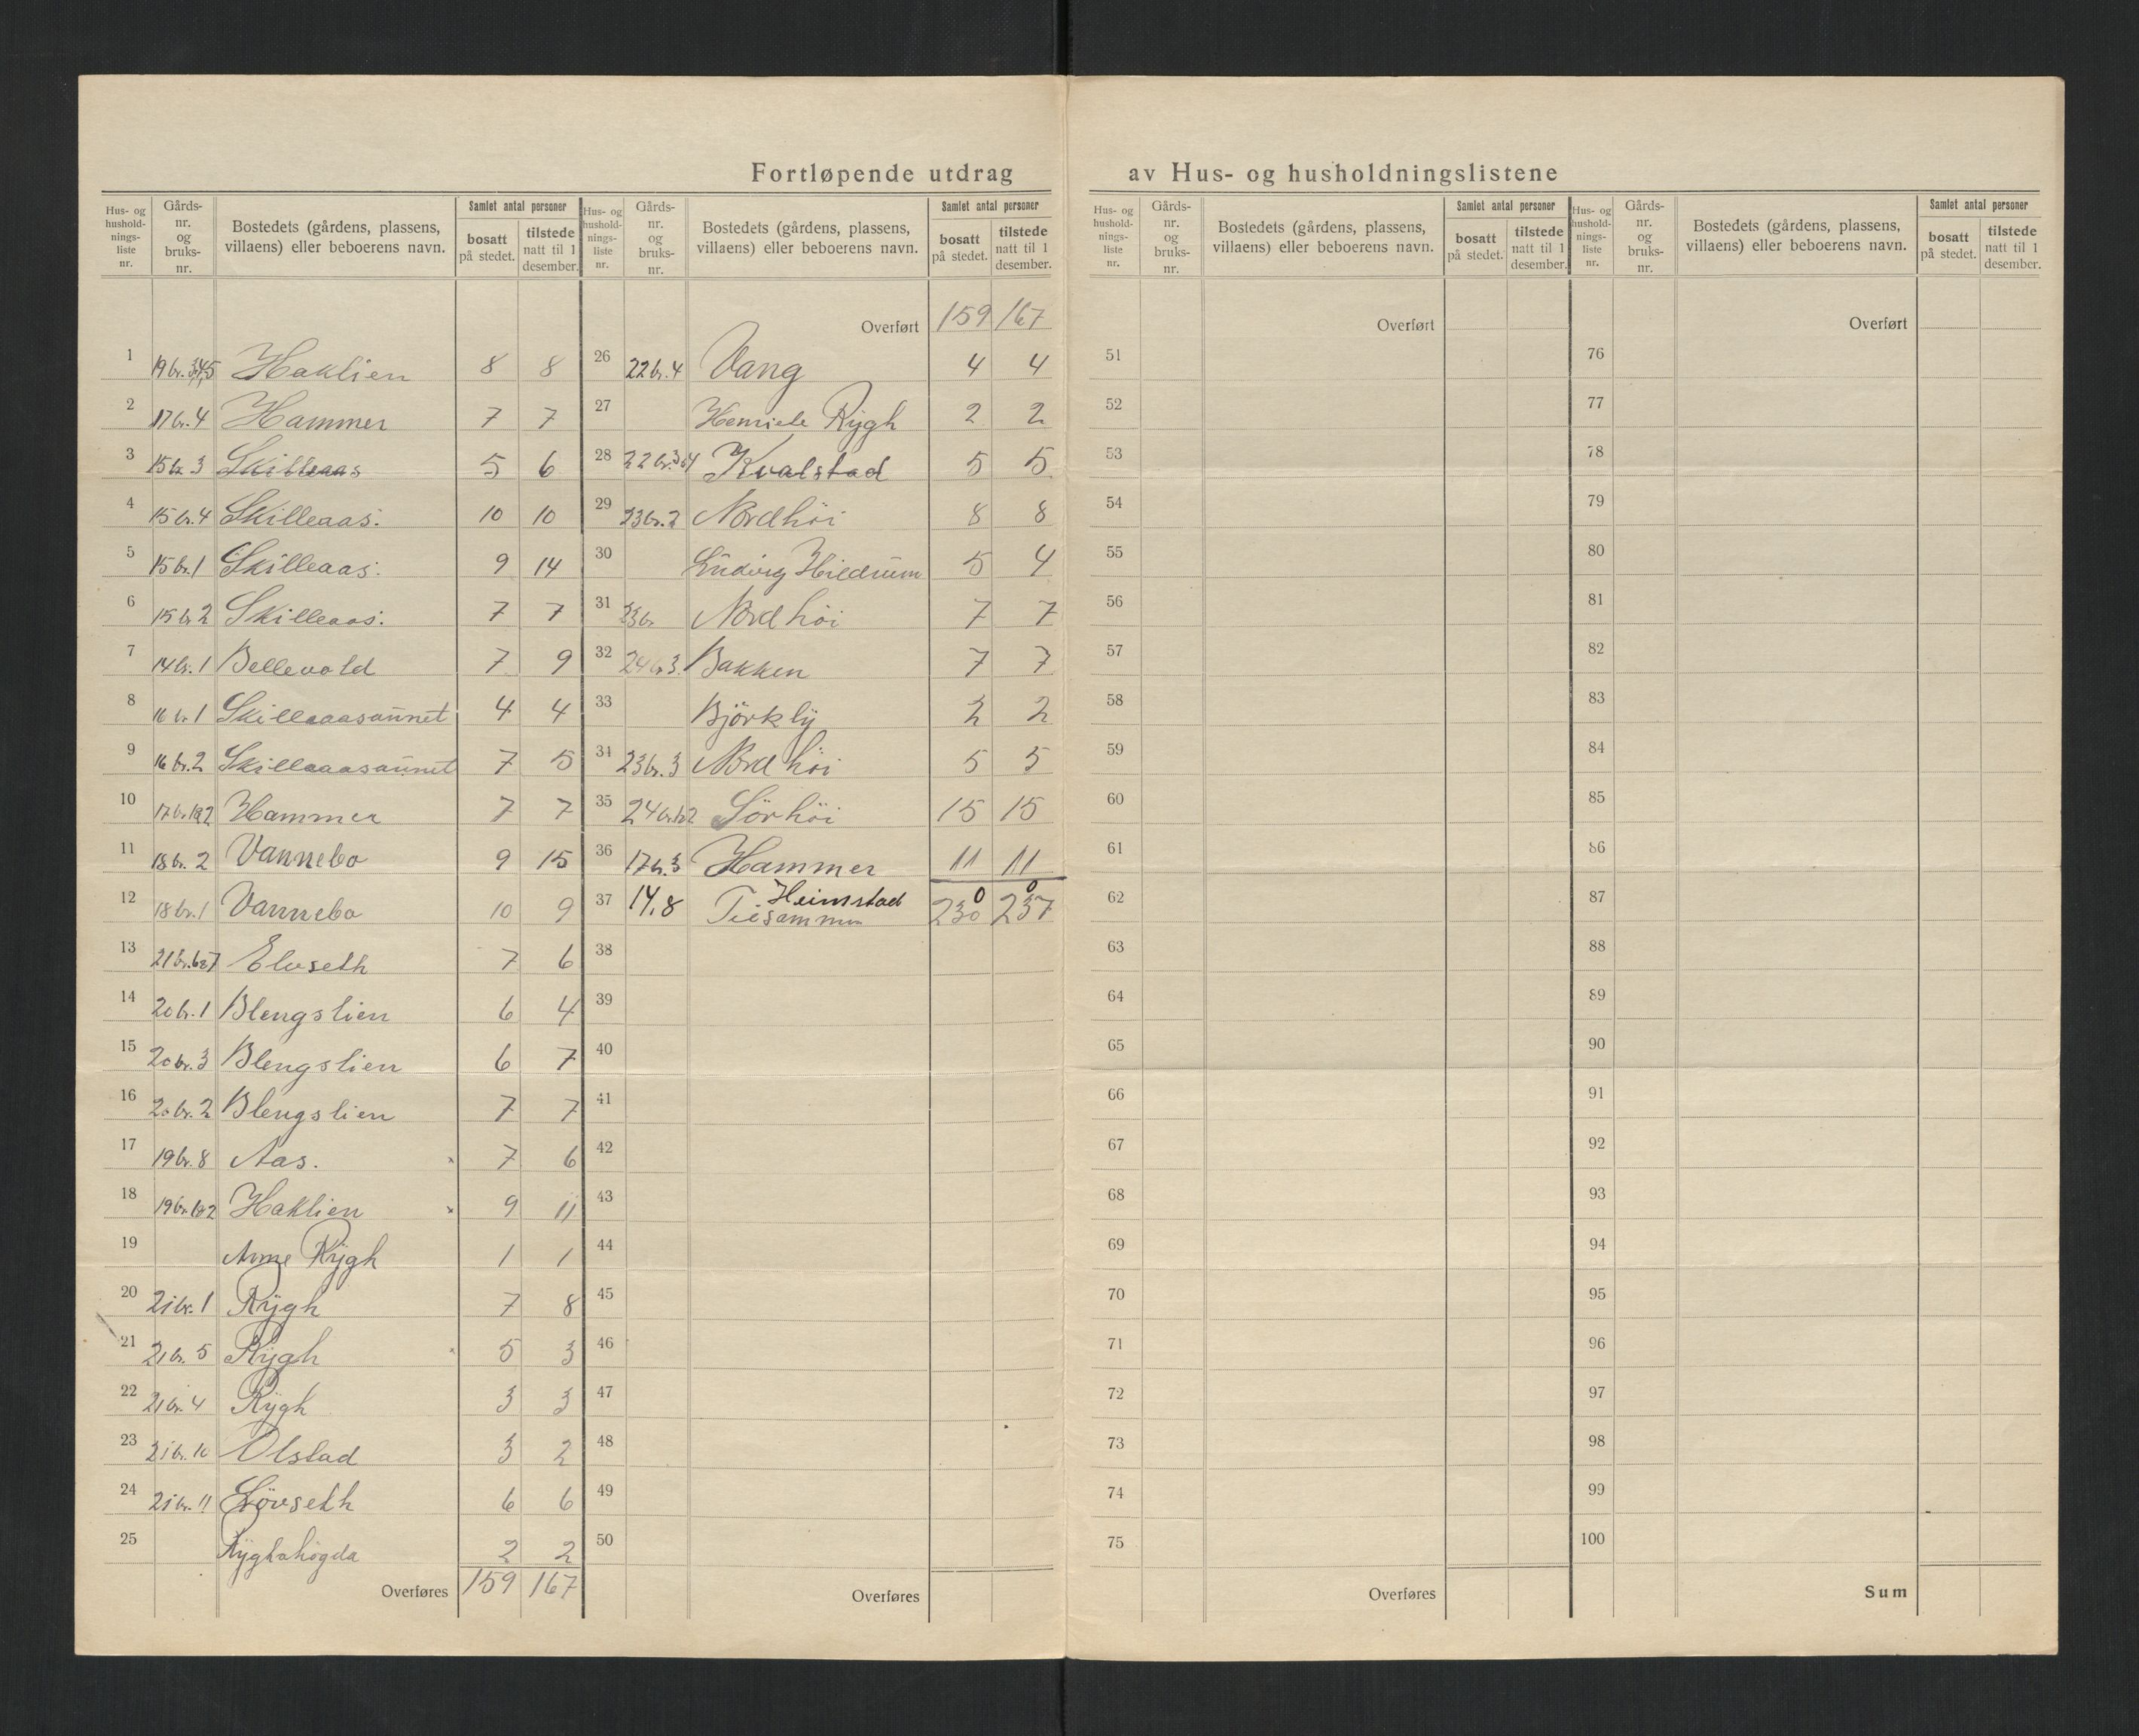 Fortløpende utdrag av Hus- og husholdningslistene
Hus- og husholdnings-liste nr. Gårds-nr. og bruks-nr. Bostedets (gårdens, plassens, villaens) eller beboerens navn. Samlet antal personer bosatt på stedet. tilstede natt til 1 desember.
1 19 br. 3,4,5 Haklien 8 8
2 17 br. 4 Hammer 7 7
3 15 br 3 Skilleaas 5 6
4 15 br. 4 Skilleaas. 10 10
5 15 br. 1 Skilleaas. 9 14
6 15 br 2 Skilleaas. 7 7
7 14 br. 1 Bellevold 7 9
8 16 br 1 Skilleaasaunet 4 4
9 16 br. 2 Skilleaasaunet 7 5
10 17 br. 1&2 Hammer 7 7
11 18 br. 2 Vannebo 9 15
12 18 br. 1 Vannebo 10 9
13 21 br. 6&7 Elvseth 7 6
14 20 br. 1 Blengslien 6 4
15 20 br. 3 Blengslien 6 7
16 20 br. 2 Blengslien 7 7
17 19 br. 8 Aas. 7 6
18 19 br. 1&2 Haklien 9 11
19 Anne Rygh 1 1
20 21 br. 1 Rygh 7 8
21 21 br. 5 Rygh 5 3
22 21 br. 4 Rygh 3 3
23 21 br. 10 Olstad 3 2
24 21 br. 11 Lövseth 6 6
25 Ryghahögda 2 2
Overføres 159 167
Hus- og husholdnings-liste nr. Gårds-nr. og bruks-nr. Bostedets (gårdens, plassens, villaens) eller beboerens navn. Samlet antal personer bosatt på stedet. tilstede natt til 1 desember.
Overført 159 167
26 22 br. 4 Vang 4 4
27 Rygh 2 2
28 22 br. Kvalstad 5 5
29 23 br. 2 Nordhöi 8 8
30 Ludvig Hildrum 5 4
31 23 br Nordhöi 7 7
32 24 br 3. Bakken 7 7
33 Björkly 2 2
34 23 br. 3 Nordhöi 5 5
35 24 br. 1&2 Sörhöi 15 15
36 17 br. 3 Hammer 11 11
37 14,8 Heimstad 0 0
Tilsammen 230 237
38
39
40
41
42
43
44
45
46
47
48
49
50
Overføres
Hus- og husholdnings-liste nr. Gårds-nr. og bruks-nr. Bostedets (gårdens, plassens, villaens) eller beboerens navn. Samlet antal personer bosatt på stedet. tilstede natt til 1 desember.
Overført
51
52
53
54
55
56
57
58
59
60
61
62
63
64
65
66
67
68
69
70
71
72
73
74
75
Overføres
Hus- og husholdnings-liste nr. Gårds-nr. og bruks-nr. Bostedets (gårdens, plassens, villaens) eller beboerens navn. Samlet antal personer bosatt på stedet. tilstede natt til 1 desember.
Overført
76
77
78
79
80
81
82
83
84
85
86
87
88
89
90
91
92
93
94
95
96
97
98
99
100
Sum